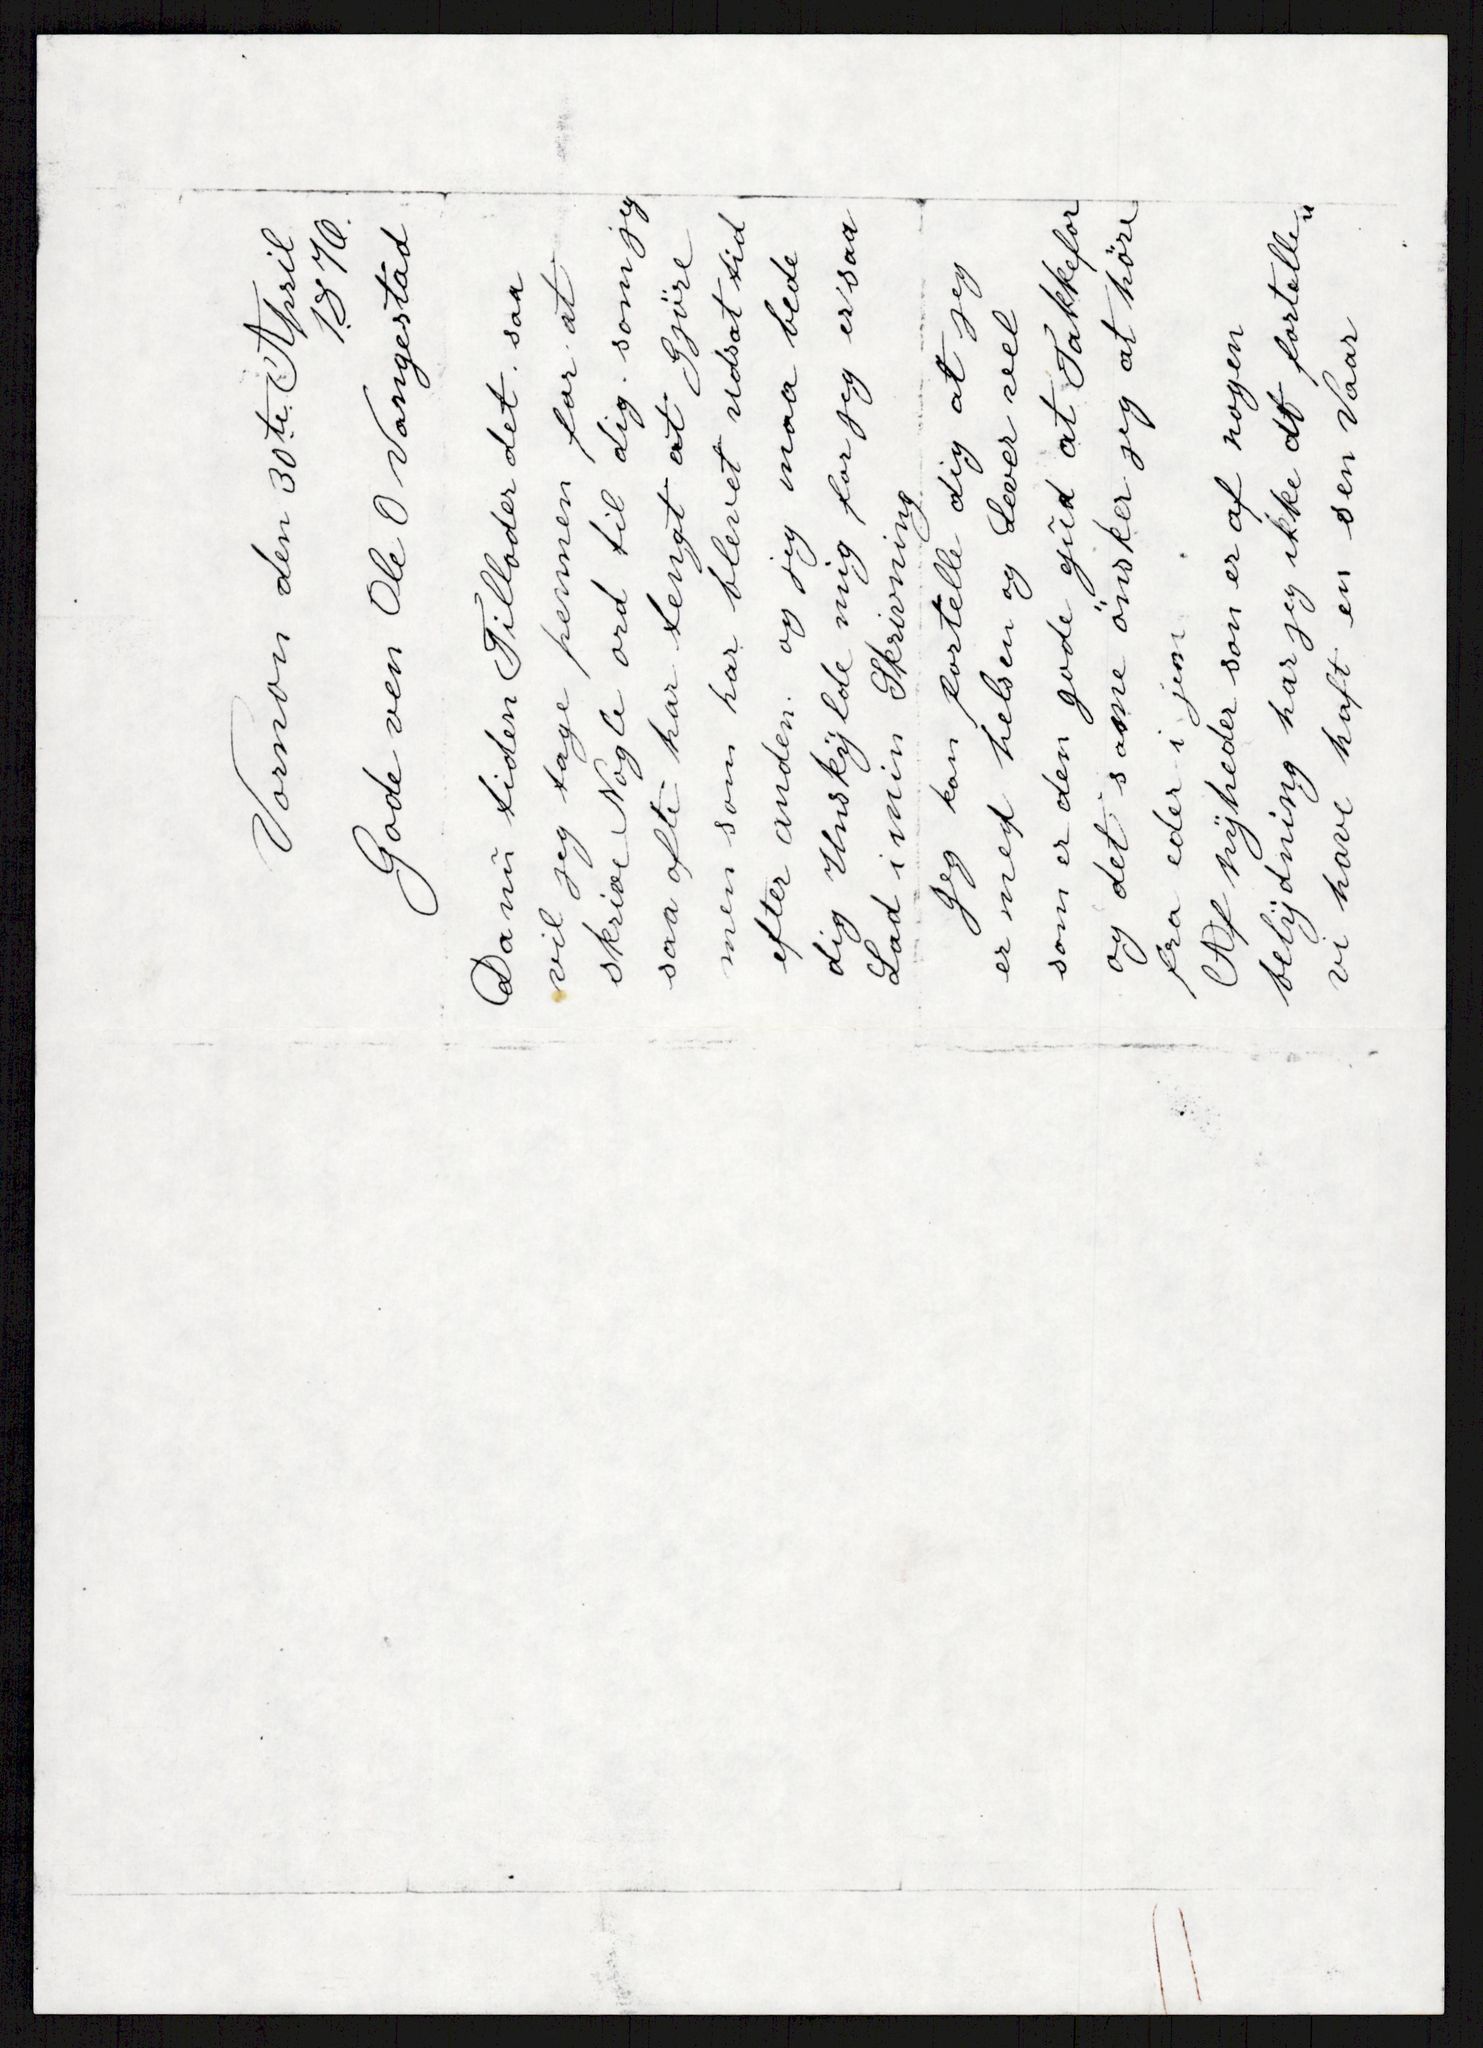 Vornon den 30te April
1876.
Gode ven Ole O Vangestad
Da nu tiden Tillader det. saa
vil jeg tage pennen for at
skrive Nogle ord til dig. som jeg
saa ofte har tengt at Gjöre
men som har blevet udsat tid
efter anden. og jeg maa bede
dig Unskylde mig for jeg er saa
Lad i min Skrivning
Jeg kan fortelle dig at jeg
er med helsen og Lever vel
som er den gode gud at Takke for
og det same önsker jeg at höre
fra eder i jem.
Af nyheder som er af nogen
belydning har jeg ikke at fortelle"
vi have haft en sen Vaar